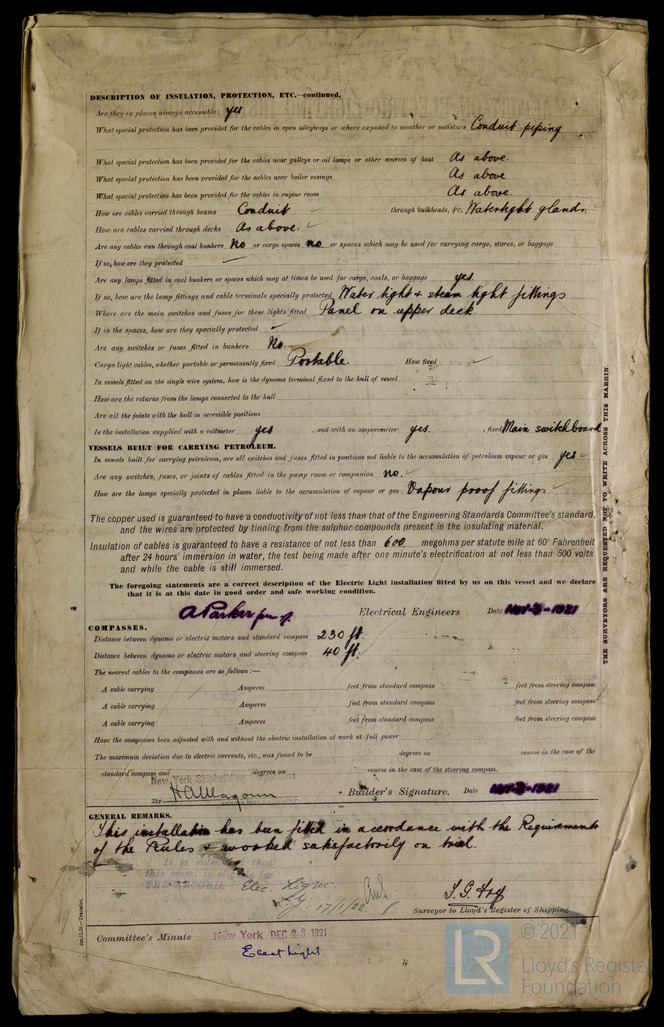 DESCRIPTION OF INSULATION, PROTECTION, ETC.—continued.
Are they in places always accessible yes
What special protection has been provided for the cables in open alleyways or where exposed to weather or moisture Conduit piping
What special protection has been provided for the cables near galleys or oil lamps or other sources of heat As above.
What special protection has been provided for the cables near boiler casings As above
What special protection has been provided for the cables in engine room As above.
How are cables carried through beams Conduit through bulkheads, &c. Watertight glands.
How are cables carried through decks As above.
Are any cables run through coal bunkers No or cargo spaces no or spaces which may be used for carrying cargo, stores, or baggage
If so, how are they protected —
Are any lamps fitted in coal bunkers or spaces which may at times be used for cargo, coals, or baggage yes
If so, how are the lamp fittings and cable terminals specially protected Water tight & steam tight fittings
Where are the main switches and fuses for these lights fitted Panel on upper deck
If in the spaces, how are they specially protected
Are any switches or fuses fitted in bunkers No
Cargo light cables, whether portable or permanently fixed Portable. How fixed
In vessels fitted on the single wire system, how is the dynamo terminal fixed to the hull of vessel
How are the returns from the lamps connected to the hull
Are all the joints with the hull in accesible positions
Is the installation supplied with a voltmeter yes , and with an amperemeter yes. , fixed Main switchboard
VESSELS BUILT FOR CARRYING PETROLEUM.
In vessels built for carrying petroleum, are all switches and fuses fitted in positions not liable to the accumulation of petroleum vapour or gas yes
Are any switches, fuses, or joints of cables fitted in the pump room or companion no.
How are the lamps specially protected in places liable to the accumulation of vapour or gas Vapour proof fittings
The copper used is guaranteed to have a conductivity of not less than that of the Engineering Standards Committee's standard,
and the wires are protected by tinning from the sulphur compounds present in the insulating material.
Insulation of cables is guaranteed to have a resistance of not less than 600 megohms per statute mile at 60° Fahrenheit
after 24 hours' immersion in water, the test being made after one minute's electrification at not less than 500 volts
and while the cable is still immersed.
The foregoing statements are a correct description of the Electric Light installation fitted by us on this vessel and we declare
that it is at this date in good order and safe working condition.
A Parker Electrical Engineers Date NOV -1921
COMPASSES.
Distance between dynamo or electric motors and standard compass 230 ft.
Distance between dynamo or electric motors and steering compass 40 ft.
The nearest cables to the compasses are as follows:—
A cable carrying Amperes feet from standard compass feet from steering compass
A cable carrying Amperes feet from standard compass feet from steering compass
A cable carrying Amperes feet from standard compass feet from steering compass
Have the compasses been adjusted with and without the electric installation at work at full power
The maximum deviation due to electric currents, etc., was found to be degrees on course in the case of the
standard compass and degrees on course in the case of the steering compass.
New York Shipbuilding
By H A Magoun Builder's Signature. Date NOV -1921
GENERAL REMARKS.
This installation has been fitted in accordance with the Requirements
of the Rules & worked satisfactorily on trial.
It is submitted that
this vessel is eligible for
THE RECORD. Elec. Light
17/1/22
Surveyor to Lloyd's Register of Shipping.
Committee's Minute New York DEC 28 1921
Elect Light
THE SURVEYORS ARE REQUESTED NOT TO WRITE ACROSS THIS MARGIN.
LR
© 2021
Lloyd's Register
Foundation